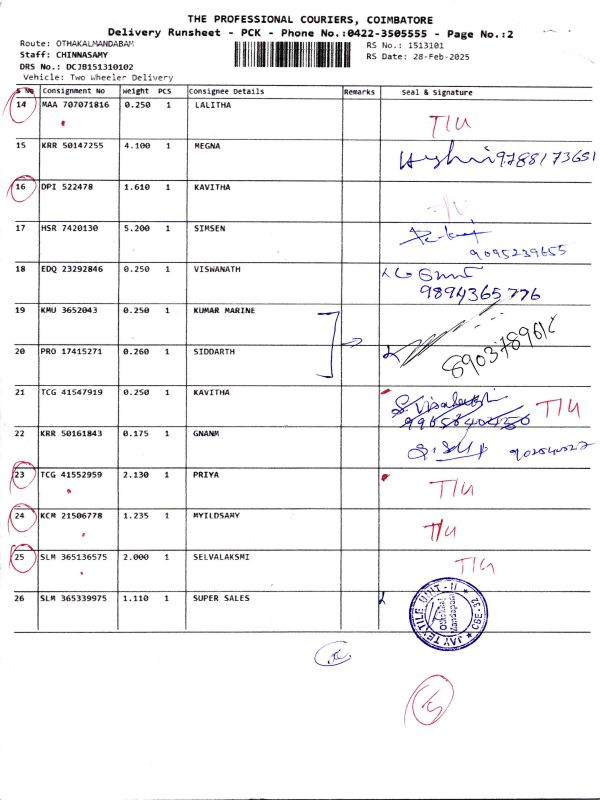 THE PROFESSIONAL COURIERS, COIMBATORE
Delivery Runsheet - PCK - Phone No.:0422-3505555 - Page No.:2
Route: OTHAKALMANDABAM
RS No.: 1513101
Staff: CHINNASAMY
RS Date: 28-Feb-2025
DRS No.: DCJB151310102
Vehicle: Two Wheeler Delivery
S No Consignment No Weight PCS Consignee Details Remarks Seal & Signature
14 MAA 707071816 0.250 1 LALITHA T/U
15 KRR 50147255 4.100 1 MEGNA 9788173651
16 DPI 522478 1.610 1 KAVITHA T/U
17 HSR 7420130 5.200 1 SIMSEN
9095239655
18 EDQ 23292846 0.250 1 VISWANATH
9894365776
19 KMU 3652043 0.250 1 KUMAR MARINE
20 PRO 17415271 0.260 1 SIDDARTH
21 TCG 41547919 0.250 1 KAVITHA T/U
22 KRR 50161843 0.175 1 GNANM
23 TCG 41552959 2.130 1 PRIYA T/U
24 KCM 21506778 1.235 1 MYILDSAMY T/U
25 SLM 365136575 2.000 1 SELVALAKSMI T/U
26 SLM 365339975 1.110 1 SUPER SALES
JAY TEXTILE UNIT-II
Othakkal
Mandapam
CBE-32